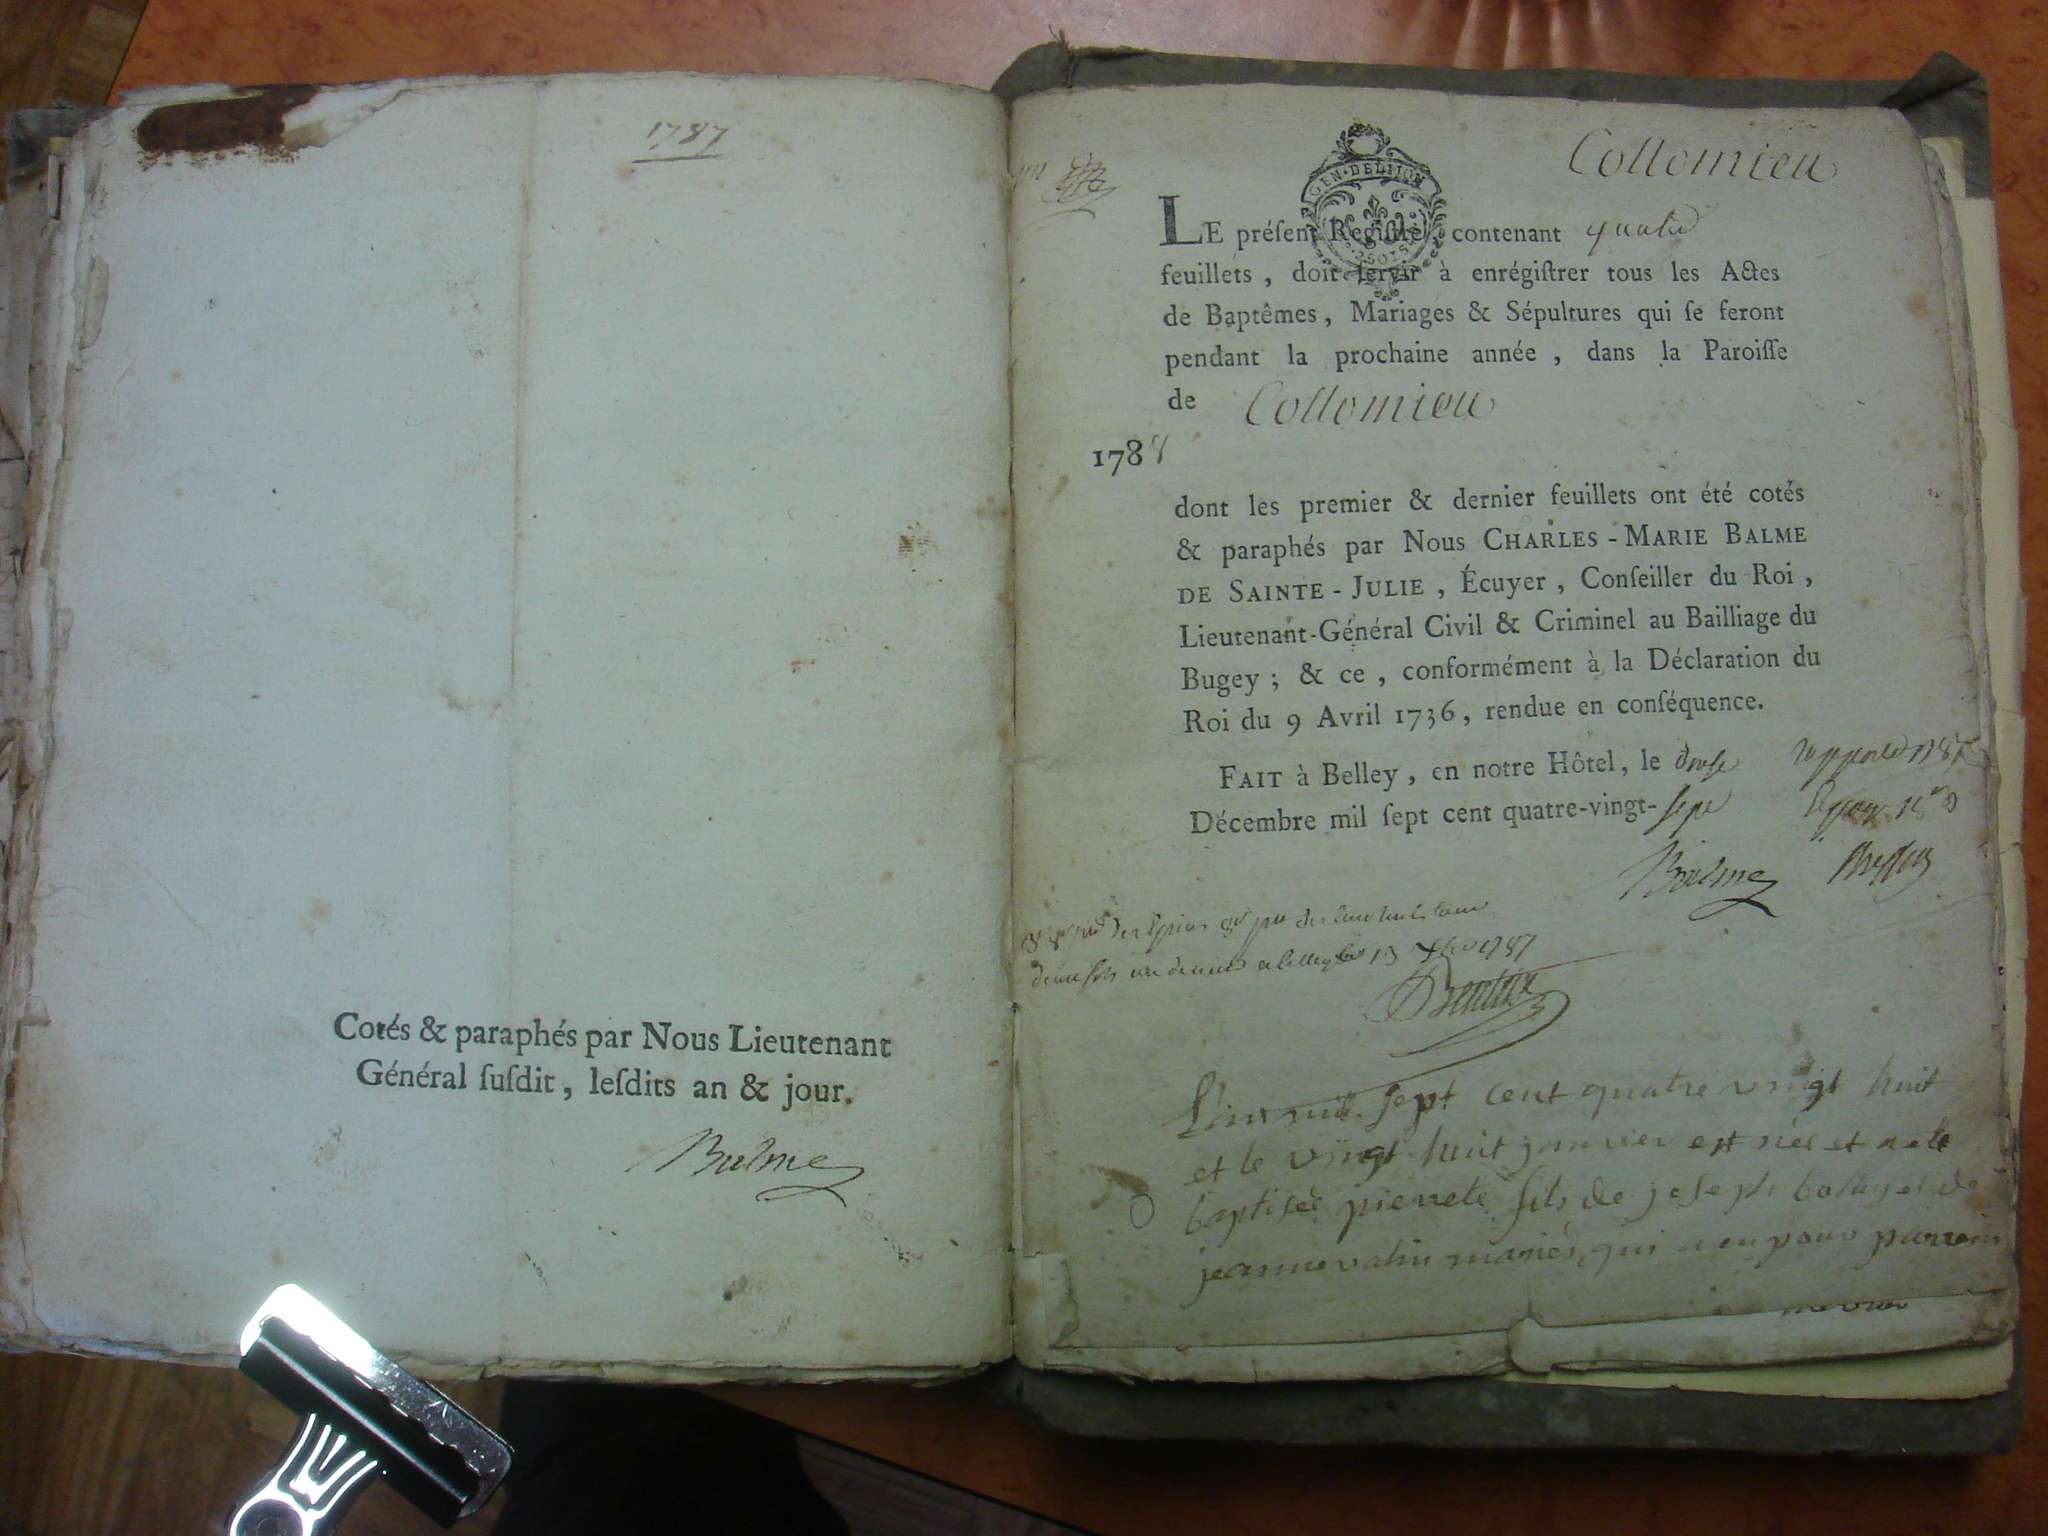 1787
Cotés & paraphés par Nous Lieutenant
Général ſuſdit, leſdits an & jour.
Balme
Collomieu
GEN·DE LION
LE préſent Regiſtre contenant quatre
feuillets, doit ſervir à enrégiſtrer tous les Actes
de Baptêmes, Mariages & Sépultures qui ſe feront
pendant la prochaine année, dans la Paroiſſe
de Collomieu
1788
dont les premier & dernier feuillets ont été cotés
& paraphés par Nous CHARLES-MARIE BALME
DE SAINTE-JULIE, Écuyer, Conſeiller du Roi,
Lieutenant-Général Civil & Criminel au Bailliage du
Bugey; & ce, conformément à la Déclaration du
Roi du 9 Avril 1736, rendue en conſéquence.
FAIT à Belley, en notre Hôtel, le douſe
Décembre mil ſept cent quatre-vingt-ſept
Balme
13 1787
L'an mil sept cent quatre vingt huit
et le vingt huit janvier est née et a eté
baptisée pierrete fils de joseph et de
jeanne mariés, qui a eu pour parrain